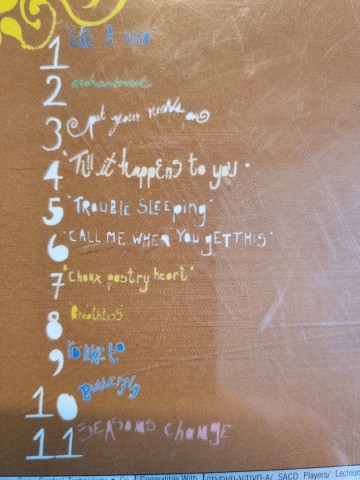 1 LIKE A STAR
2 enchantment
3 put your records on
4 "Till it happens to you"
5 "TROUBLE SLEEPING"
6 "CALL ME WHEN YOU GET THIS"
7 "Choux pastry heart"
8 Breathless
9 I'd like to
10 Butterfly
11 SEASONS CHANGE
Compatible With CD/DVD-V/DVD-A/ SACD Players/ Lecteur